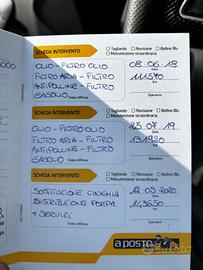 SCHEDA INTERVENTO
Tagliando Revisione Bollino Blu
Manutenzione straordinaria
OLIO - FILTRO OLIO
FILTRO ARIA - FILTRO
ANTIPOLLINE - FILTRO
GASOLIO
08 06 18
Data
111570
Km
Timbro Officina
Operatore
SCHEDA INTERVENTO
Tagliando Revisione Bollino Blu
Manutenzione straordinaria
OLIO - FILTRO OLIO
FILTRO ARIA - FILTRO
ANTIPOLLINE - FILTRO
GASOLIO
25 07 19
Data
131920
Km
Timbro Officina
Operatore
SCHEDA INTERVENTO
Tagliando Revisione Bollino Blu
Manutenzione straordinaria
SOSTITUZIONE CINGHIA
DISTRIBUZIONE POMPA
+ SERVIZI
12.03.2020
Data
143650
Km
Timbro Officina
Operatore
a posto
subito